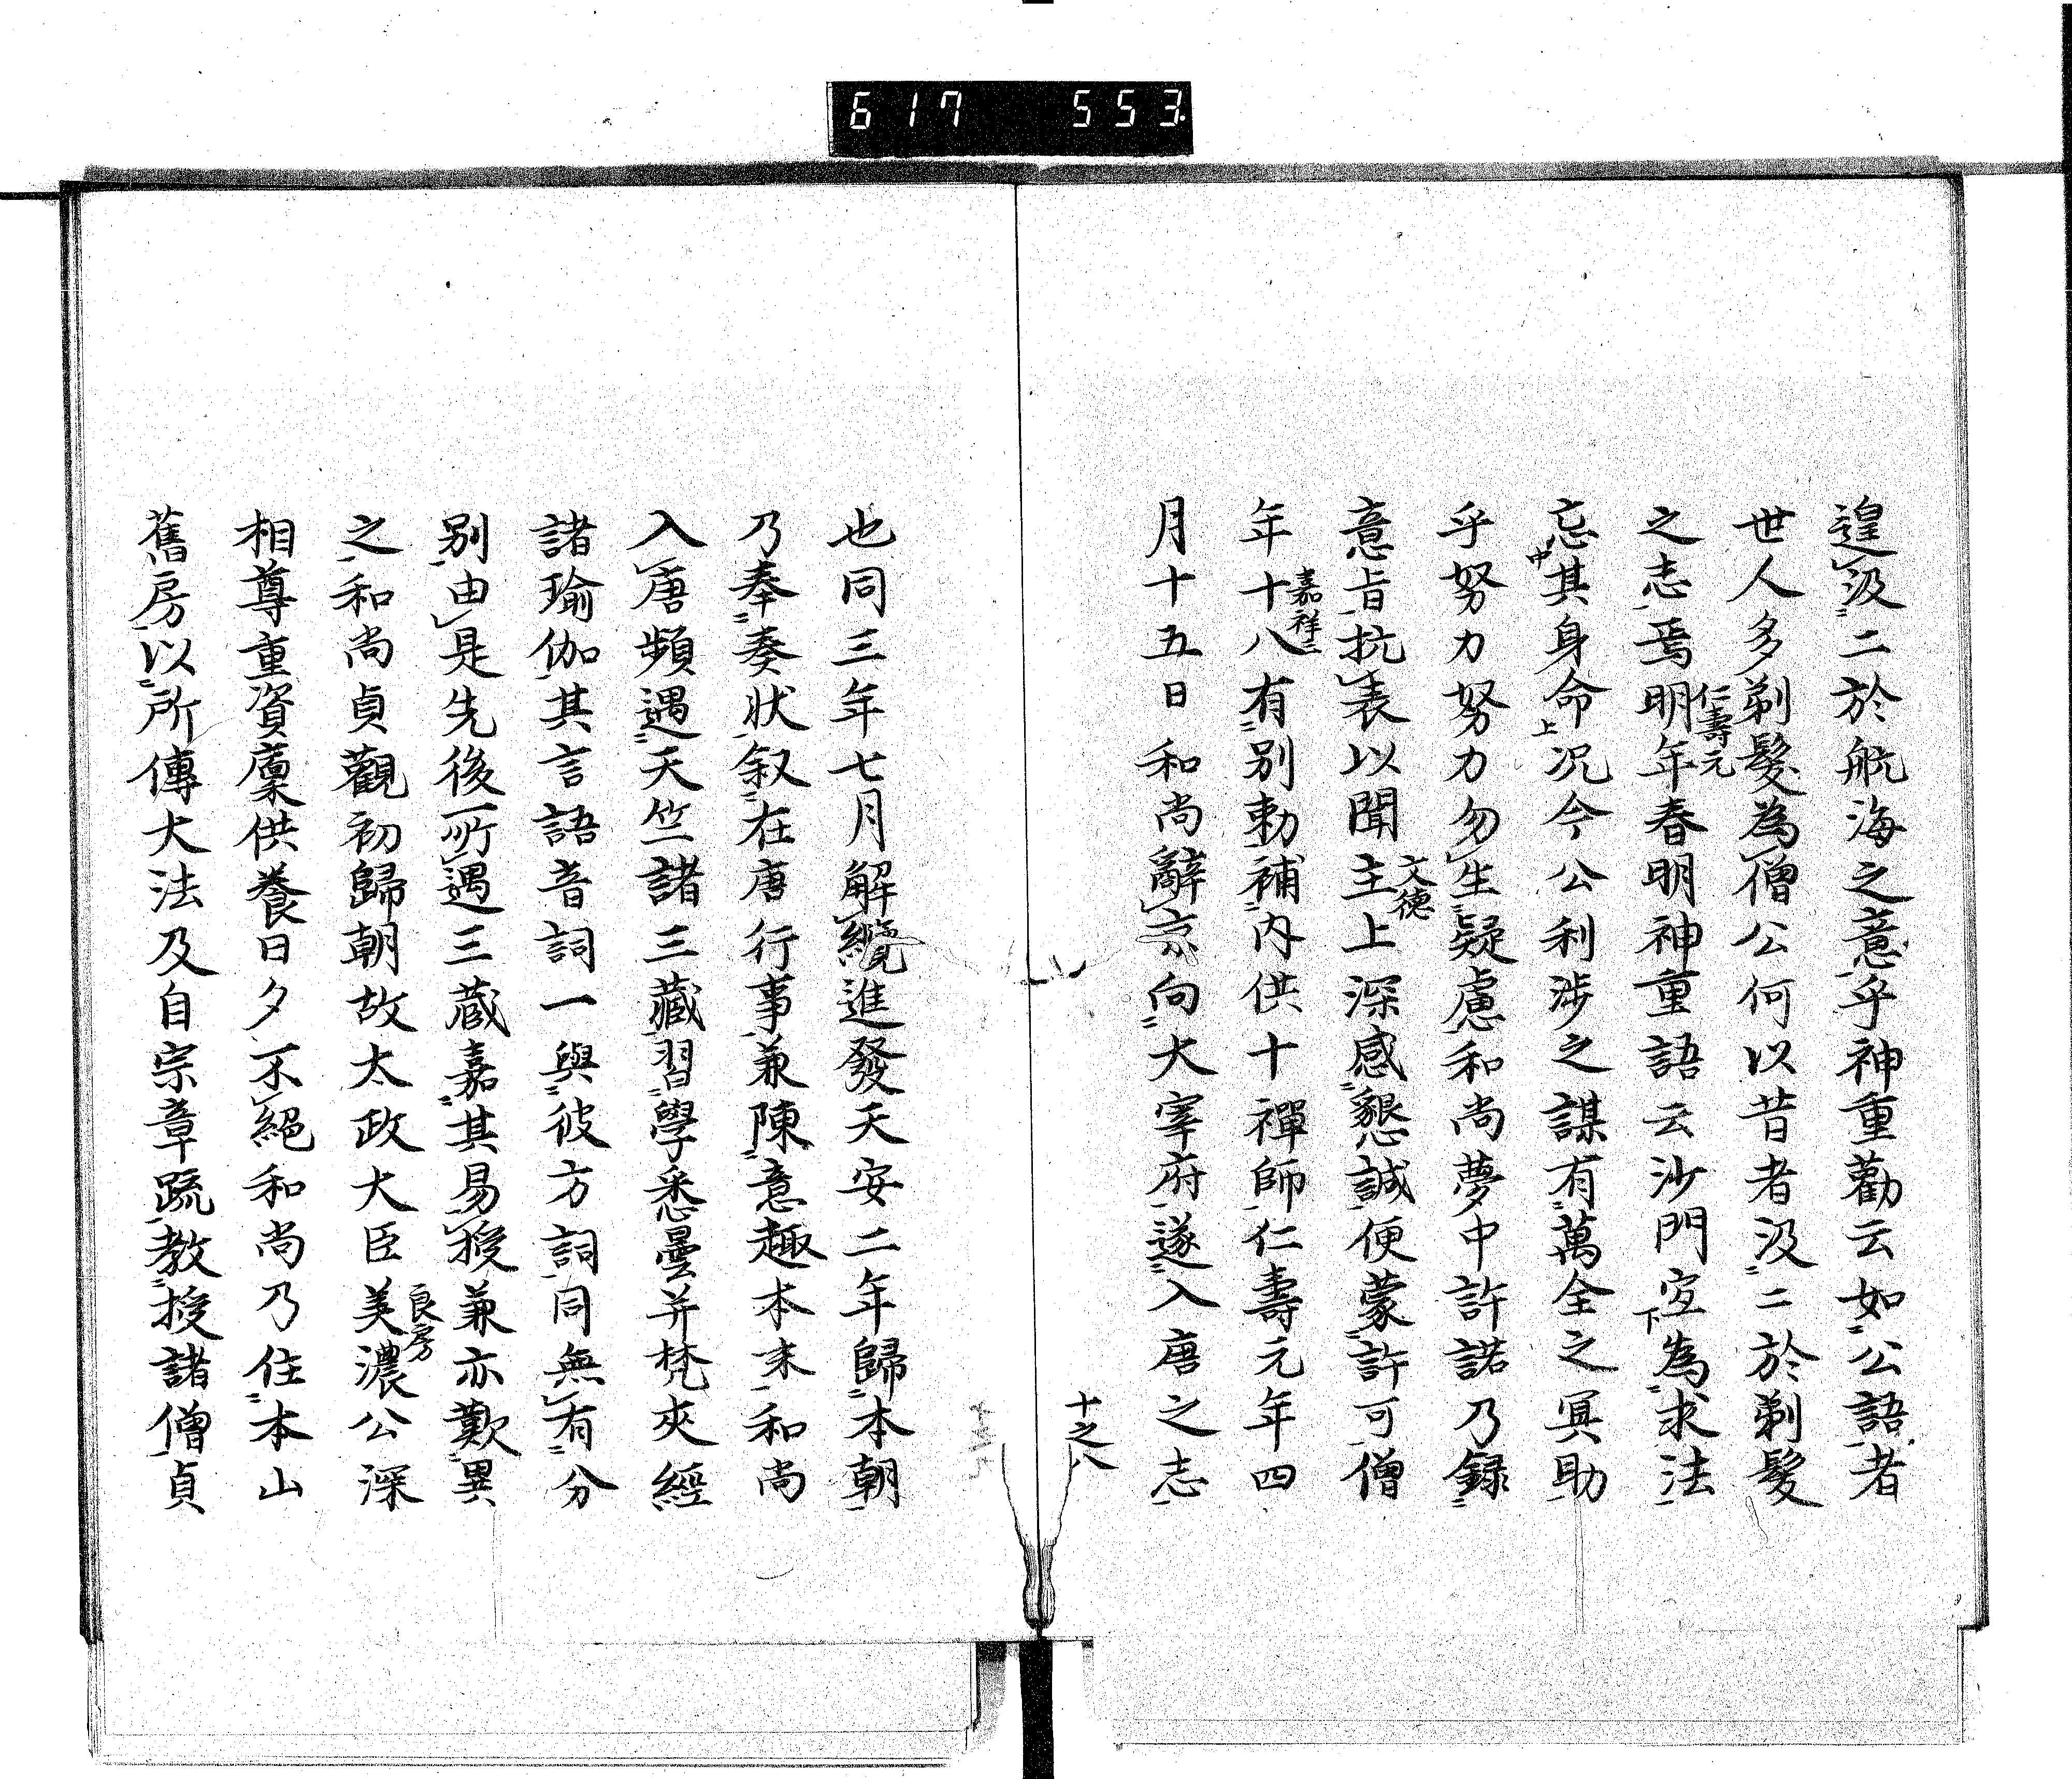 617 553
遑汲二於航海之意乎神重勸云如公語者
世人多剃髮為僧公何以昔者汲二於剃髮
之志焉明年春明神重語云沙門宜為求法
仁壽元
下
忘其身命况今公利涉之謀有萬全之冥助
中
上
乎努力努力勿生疑慮和尚夢中許諾乃録
意旨抗表以聞主上深感懇誠便蒙許可僧
文德
年十八有別勅補內供十禪師仁壽元年四
嘉祥三
月十五日和尚辭京向大宰府遂入唐之志
十之八
也同三年七月解纜進發天安二年歸本朝
乃奉奏狀叙在唐行事兼陳意趣本末和尚
入唐頻遇天竺諸三藏習學悉曇并梵夾經
諸瑜伽其言語音詞一與彼方詞同無有分
別由是先後所遇三藏嘉其易授兼亦歎異
之和尚貞觀初歸朝故太政大臣美濃公深
良房
相尊重資稟供養日夕不絕和尚乃住本山
舊房以所傳大法及自宗章疏教授諸僧貞